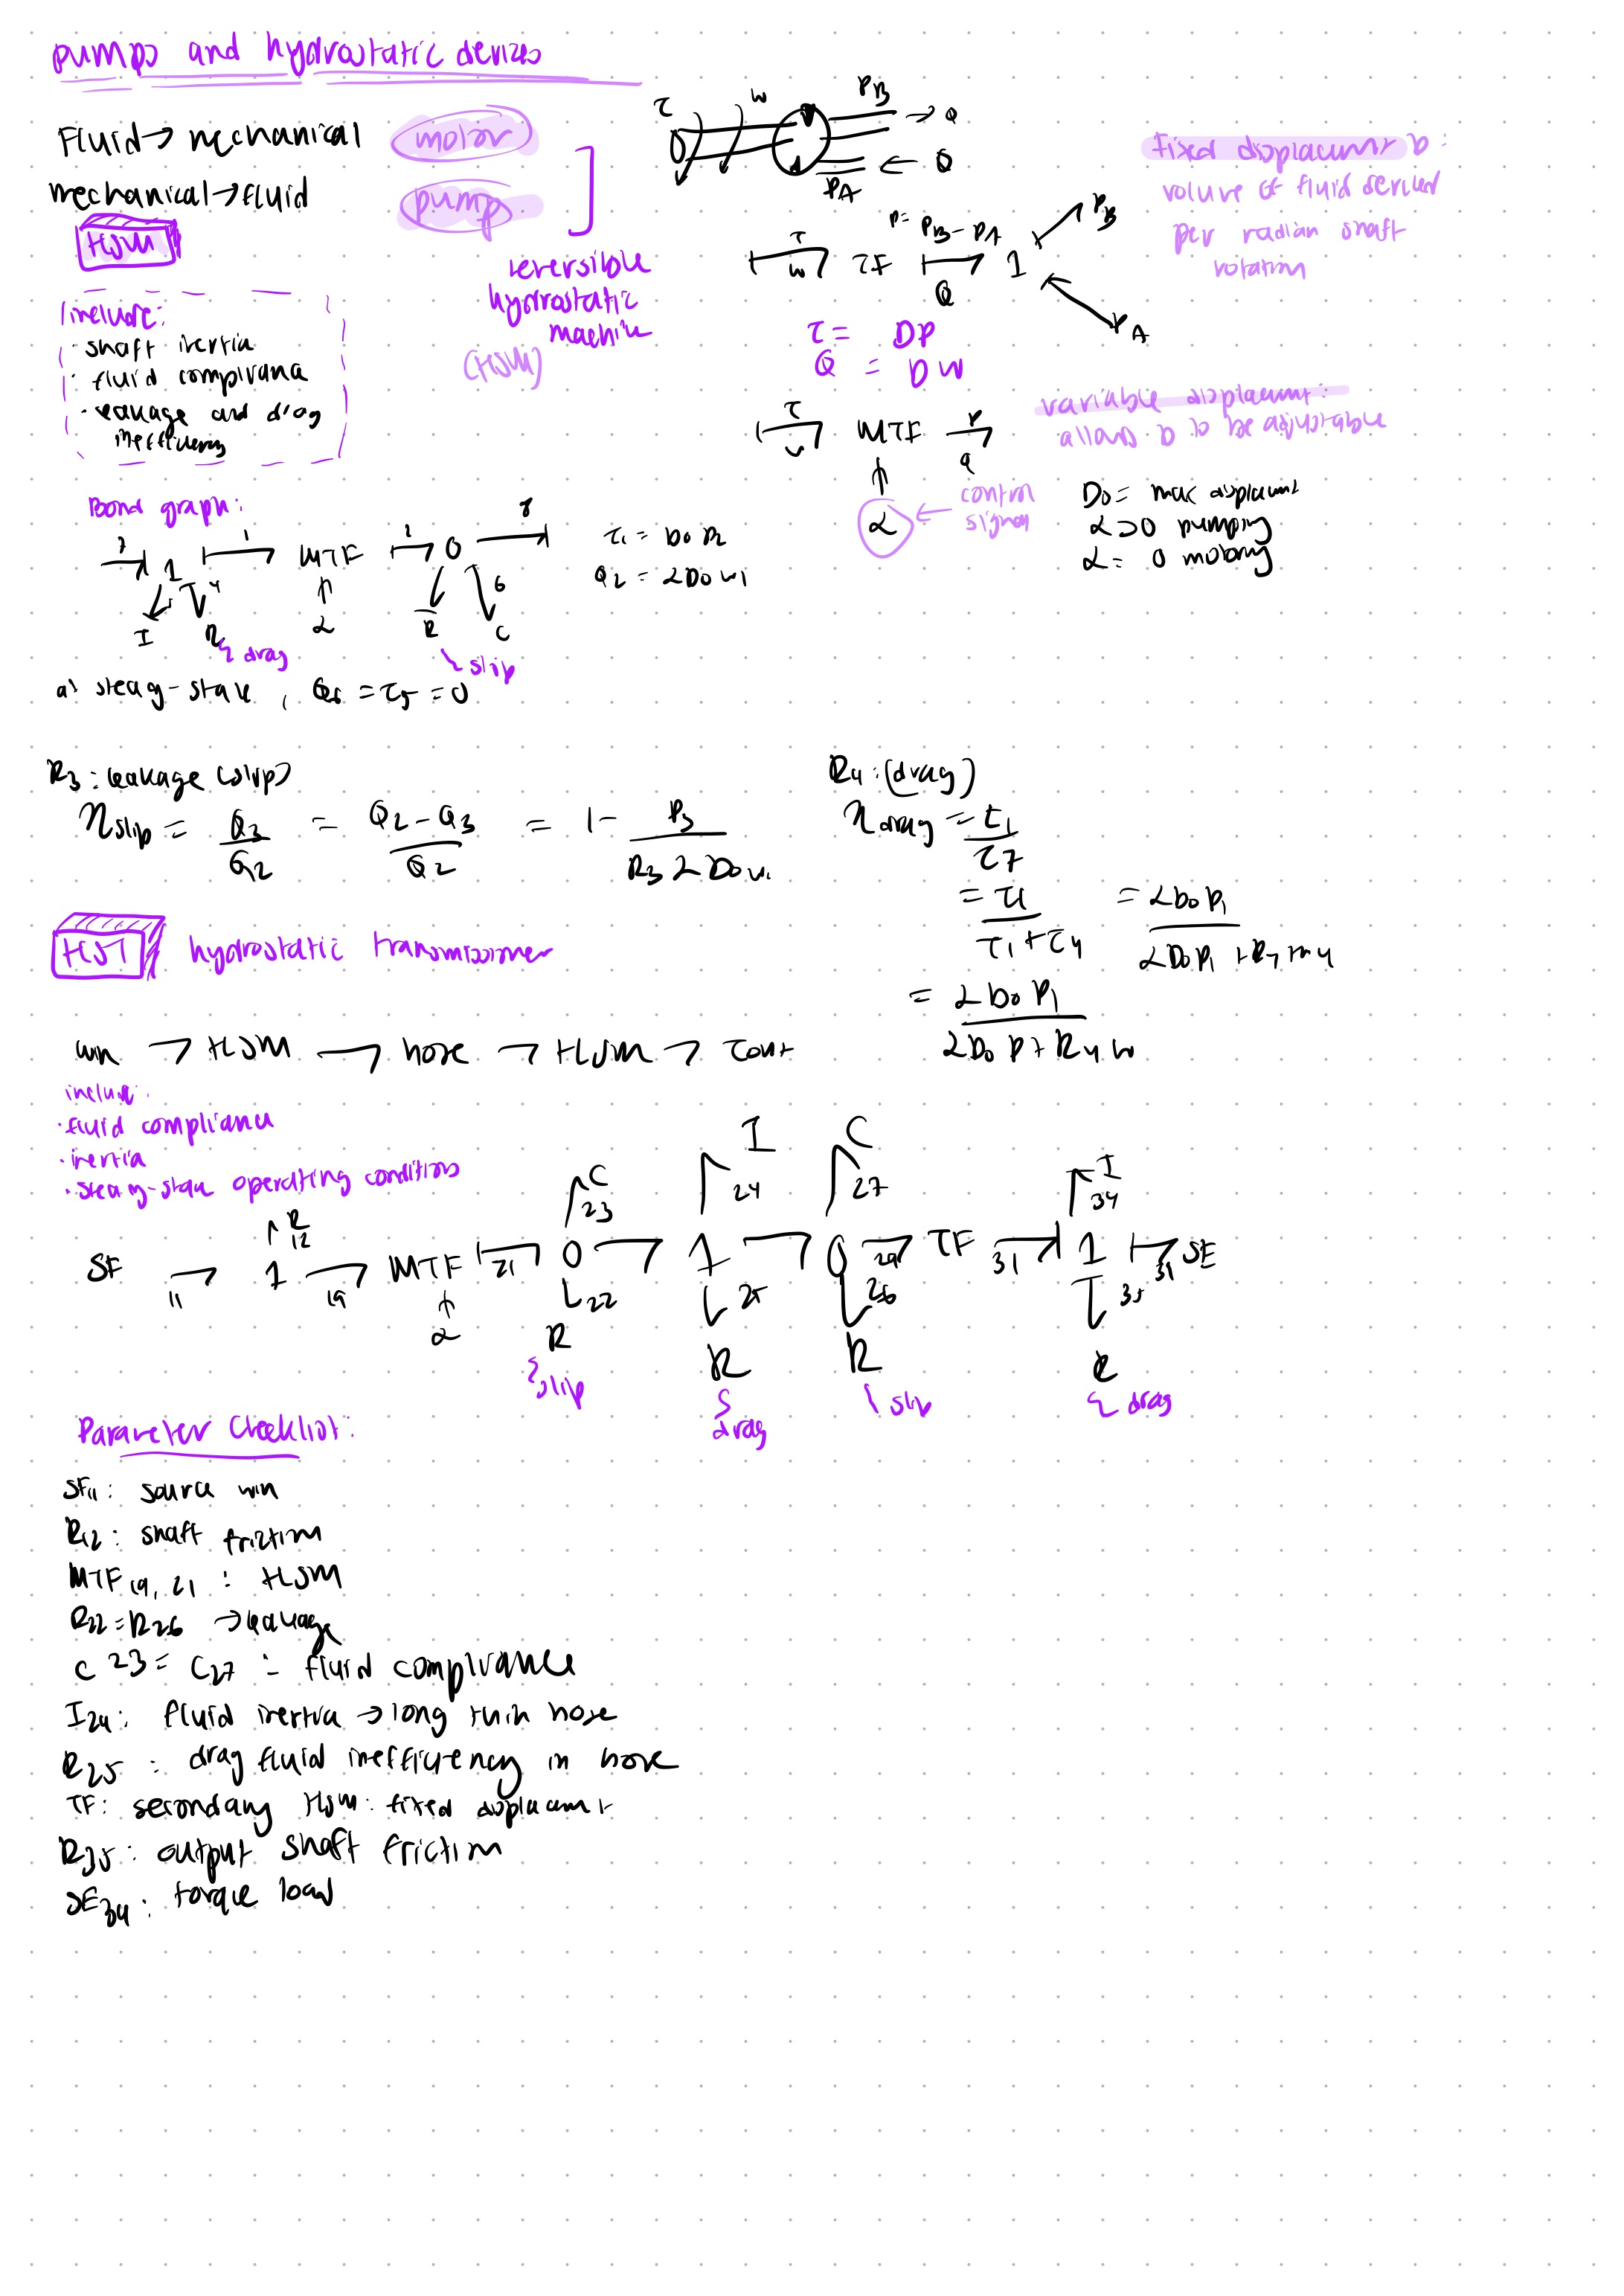 pumps and hydrostatic devices
Fluid → mechanical motor
mechanical → fluid pump
HSM
reversible
hydrostatic
machine
(HSM)
include:
· shaft inertia
· fluid compliance
· leakage and drag
inefficiency
τ ω P_B → Q
P_A ← Q
P = P_B - P_A
τ ω TF Q 1 P_B P_A
τ = DP
Q = Dω
Fixed displacement D:
volume of fluid derived
per radian shaft
rotation
variable displacement:
allows D to be adjustable
τ ω MTF P q
α ← control
signal
D0 = max displacement
α > 0 pumping
α = 0 motoring
Bond graph:
7 1 1 MTF 2 0 8
4 6
I R α R C
drag slip
τ1 = D0 P2
Q2 = αD0 ω1
at steady-state, Q6 = τ5 = 0
R3: leakage (slip)
η slip = Q3/Q2 = (Q2 - Q3)/Q2 = 1 - P3/(R3 α D0 ω1)
R4: (drag)
η drag = τ1/τ7
= τ1/(τ1 + τ4) = αD0P1/(αD0P1 + R4 m4)
= αD0P1/(αD0P + R4 ω)
HST hydrostatic transmissioner
ωin → HSM → hose → HSM → τout
include:
· fluid compliance
· inertia
· steady-state operating conditions
R 12 C 23 I 24 C 27 I 34
SF 11 1 19 MTF 21 0 1 0 29 TF 31 1 31 SE
α 22 25 26 35
R R R R
slip drag slip drag
Parameter Checklist:
SF11: source ωin
R12: shaft friction
MTF19,21: HSM
R22 = R26 → leakage
C23 = C27 : fluid compliance
I24: fluid inertia → long thin hose
R25: drag fluid inefficiency in hose
TF: secondary HSM: fixed displacement
R35: output shaft friction
SE34: torque load